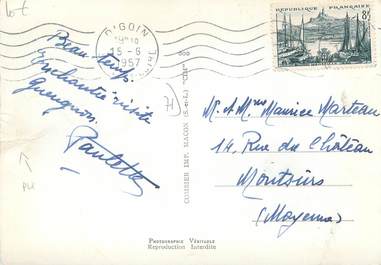 lot
DIGOIN
15-6
1957
REPUBLIQUE FRANÇAISE
8F
Beau temps.
Enchantée visite
Gueugnon.
Paulette
71
PLI
COMBIER IMP. MACON (S.-&-L.) "CIM"
M. & Mme Maurice Marteau
14, Rue du Château
Montsûrs
(Mayenne)
PHOTOGRAPHIE VÉRITABLE
Reproduction Interdite